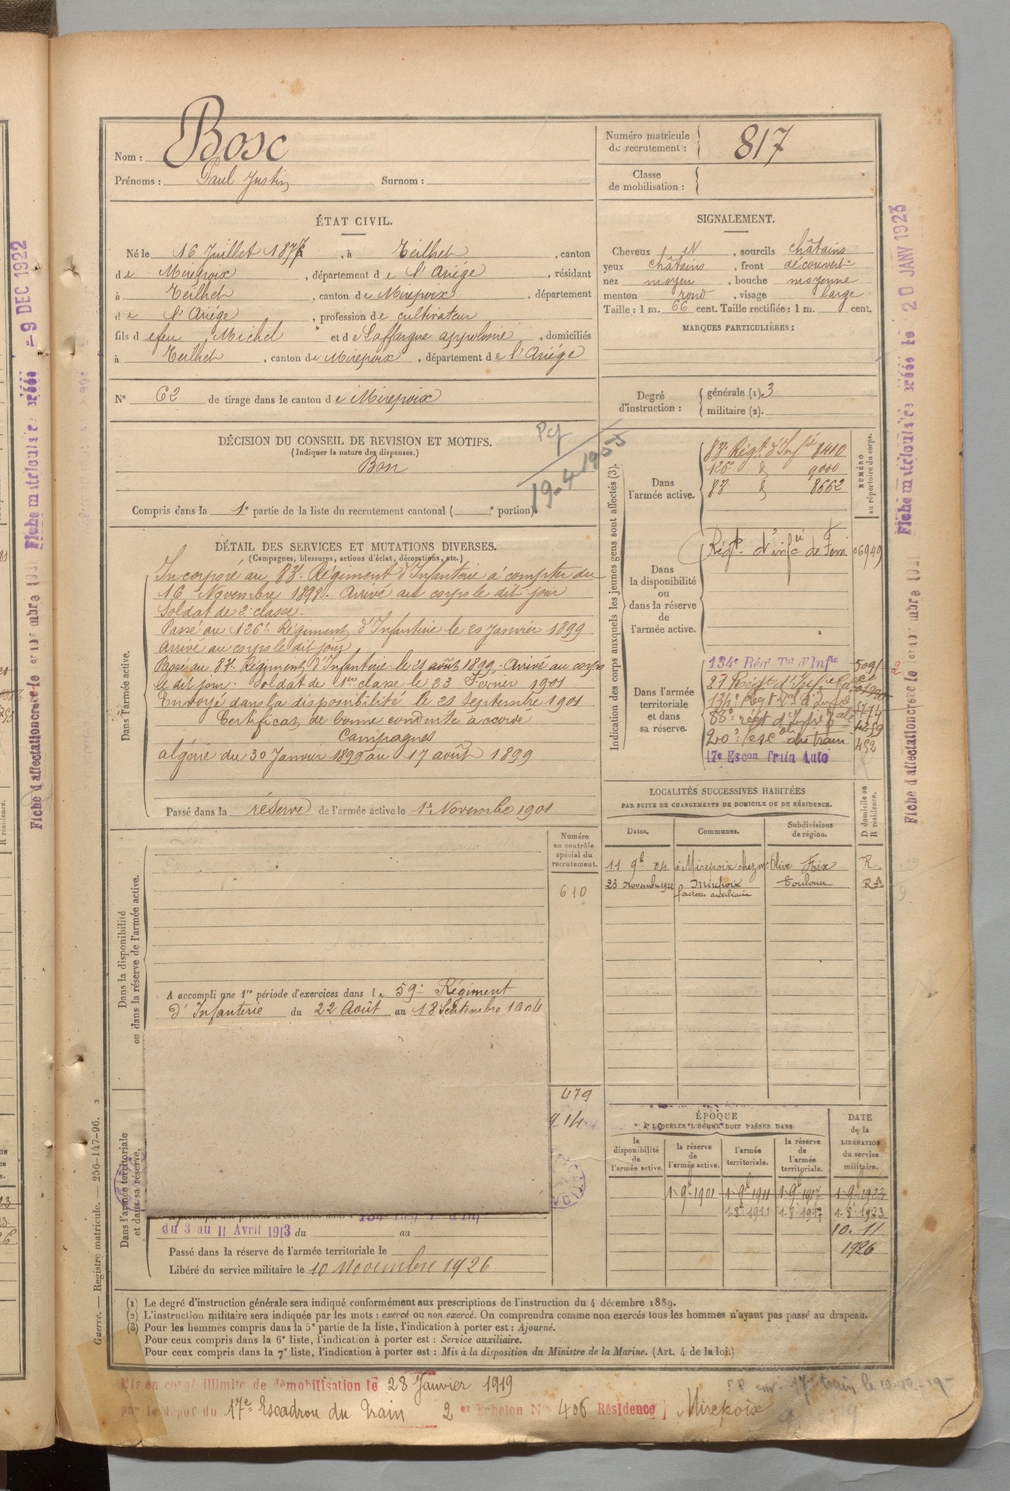 Nom : Bosc
Prénoms : Paul Justin Surnom :
Numéro matricule
de recrutement : 817
Classe
de mobilisation :
ÉTAT CIVIL.
Né le 16 Juillet 1877, à Teilhet, canton
de Mirepoix, département de l'Ariége, résidant
à Teilhet, canton de Mirepoix, département
de l'Ariége, profession de cultivateur
fils d efeu Michel et de Laffargue appolonie, domiciliés
à Teilhet, canton de Mirepoix, département de l'Ariége
N° 62 de tirage dans le canton de Mirepoix
SIGNALEMENT.
Cheveux N, sourcils châtains
yeux châtains, front découvert
nez moyen, bouche moyenne
menton rond, visage large
Taille : 1 m. 66 cent. Taille rectifiée : 1 m. cent.
MARQUES PARTICULIÈRES :
Degré
d'instruction :
générale (1). 3
militaire (2).
DÉCISION DU CONSEIL DE REVISION ET MOTIFS.
(Indiquer la nature des dispenses.)
Bon
Compris dans la 1e partie de la liste du recrutement cantonal ( portion).
DÉTAIL DES SERVICES ET MUTATIONS DIVERSES.
(Campagnes, blessures, actions d'éclat, décorations, etc.)
Dans l'armée active.
Incorporé au 83e Régiment d'Infanterie à compter du
16 Novembre 1898. Arrivé au corps le dit jour
Soldat de 2e classe.
Passé au 126e Régiment d'Infanterie le 20 Janvier 1899
Arrivé au corps le dit jour
Passé au 83e Régiment d'Infanterie le 21 août 1899. Arrivé au corps
le dit jour. Soldat de 1ere classe le 23 Février 1901
Envoyé dans la disponibilité le 23 Septembre 1901
Certificat de bonne conduite accordé
Campagnes
algérie du 30 Janvier 1899 au 17 août 1899
Passé dans la réserve de l'armée active le 1er Novembre 1901
Indication des corps auxquels les jeunes gens sont affectés (3).
NUMÉRO
au répertoire du corps.
Dans
l'armée active.
83e Régt d'Infrie 8410
126 d 9000
83 d 8662
Dans
la disponibilité
ou
dans la réserve
de
l'armée active.
Régt d'infie de Foix 06949
Dans l'armée
territoriale
et dans
sa réserve.
134e Régt Tal d'Infie
20e esc du train 452
17e Escon Train Auto
LOCALITÉS SUCCESSIVES HABITÉES
PAR SUITE DE CHANGEMENTS DE DOMICILE OU DE RÉSIDENCE.
Dates. Communes. Subdivisions
de région. D domicile ou
R résidence.
11 9e 04 à Mirepoix chez mr Olive Foix R
23 Novembre 1922 Mirepoix Toulouse RA
facteur auxiliaire
Dans la disponibilité
ou dans la réserve de l'armée active.
Numéro
au contrôle
spécial du
recrutement.
610
A accompli une 1re période d'exercices dans le 59e Régiment
d'Infanterie du 22 Août au 18 Septembre 1904
479
914
Dans l'armée territoriale
et dans sa réserve.
du 3 au 11 Avril 1913 du au
Passé dans la réserve de l'armée territoriale le
Libéré du service militaire le 10 Novembre 1926
ÉPOQUE
À LAQUELLE L'HOMME DOIT PASSER DANS
la
disponibilité
de
l'armée active.
la réserve
de
l'armée active.
l'armée
territoriale.
la réserve
de
l'armée
territoriale.
DATE
de la
LIBÉRATION
du service
militaire.
1 9e 1901 1 9e 1911 1 9e 1917 1 9e 1923
1 8e 1911 1 8e 1917 1 8e 1923
10. 11
1926
(1) Le degré d'instruction générale sera indiqué conformément aux prescriptions de l'instruction du 4 décembre 1889.
(2) L'instruction militaire sera indiquée par les mots : exercé ou non exercé. On comprendra comme non exercés tous les hommes n'ayant pas passé au drapeau.
(3) Pour les hommes compris dans la 5e partie de la liste, l'indication à porter est : Ajourné.
Pour ceux compris dans la 6e liste, l'indication à porter est : Service auxiliaire.
Pour ceux compris dans la 7e liste, l'indication à porter est : Mis à la disposition du Ministre de la Marine. (Art. 4 de la loi.)
Mis en congé illimité de démobilisation le 28 Janvier 1919
par le dépôt du 17e Escadron du Train 2 er Echelon N° 406 Résidence Mirepoix
Guerre. — Registre matricule. — 256-147-96.
9 DEC 1922
20 JANV 1923